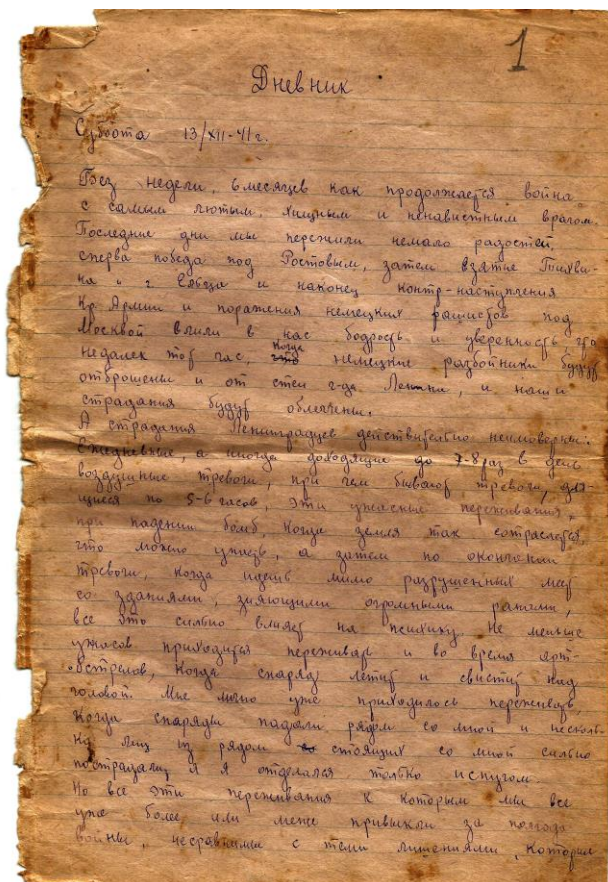 1
Дневник
Суббота 13/XII-41г.
Без недели, 6 месяцев как продолжается война
с самым лютым, хищным и ненавистным врагом.
Последние дни мы пережили немало радостей,
сперва победа под Ростовым, затем взятие Тихви-
на, г Ельца и наконец контр-наступления
Кр. Армии и поражения немецких фашистов под
Москвой влили в нас бодрость и уверенность что
недалек тот час, когда немецкие разбойники будут
отброшены и от стен г-да Ленина, и наши
страдания будут облегчены.
А страдания Ленинградцев действительно неимоверны.
Ежедневные, а иногда доходящие до 7-8 раз в день
воздушные тревоги, при чем бывают тревоги, для-
щиеся по 5-6 часов, эти ужасные переживания,
при падении бомб, когда земля так сотрясается,
что можно упасть, а затем по окончании
тревоги, когда идешь мимо разрушенных мест
со зданиями, зияющими огромными ранами,
все это сильно влияет на психику. Не меньше
ужасов приходится переживать и во время арт-
обстрелов, когда снаряд летит и свистит над
головой. Мне лично уже приходилось переживать,
когда снаряды падали рядом со мной и несколь-
ко лиц из рядом стоящих со мной сильно
пострадали, а я отделался только испугом.
Но все эти переживания к которым мы все
уже более или мене привыкли за полгода
войны, несравнимы с теми лишениями, которые